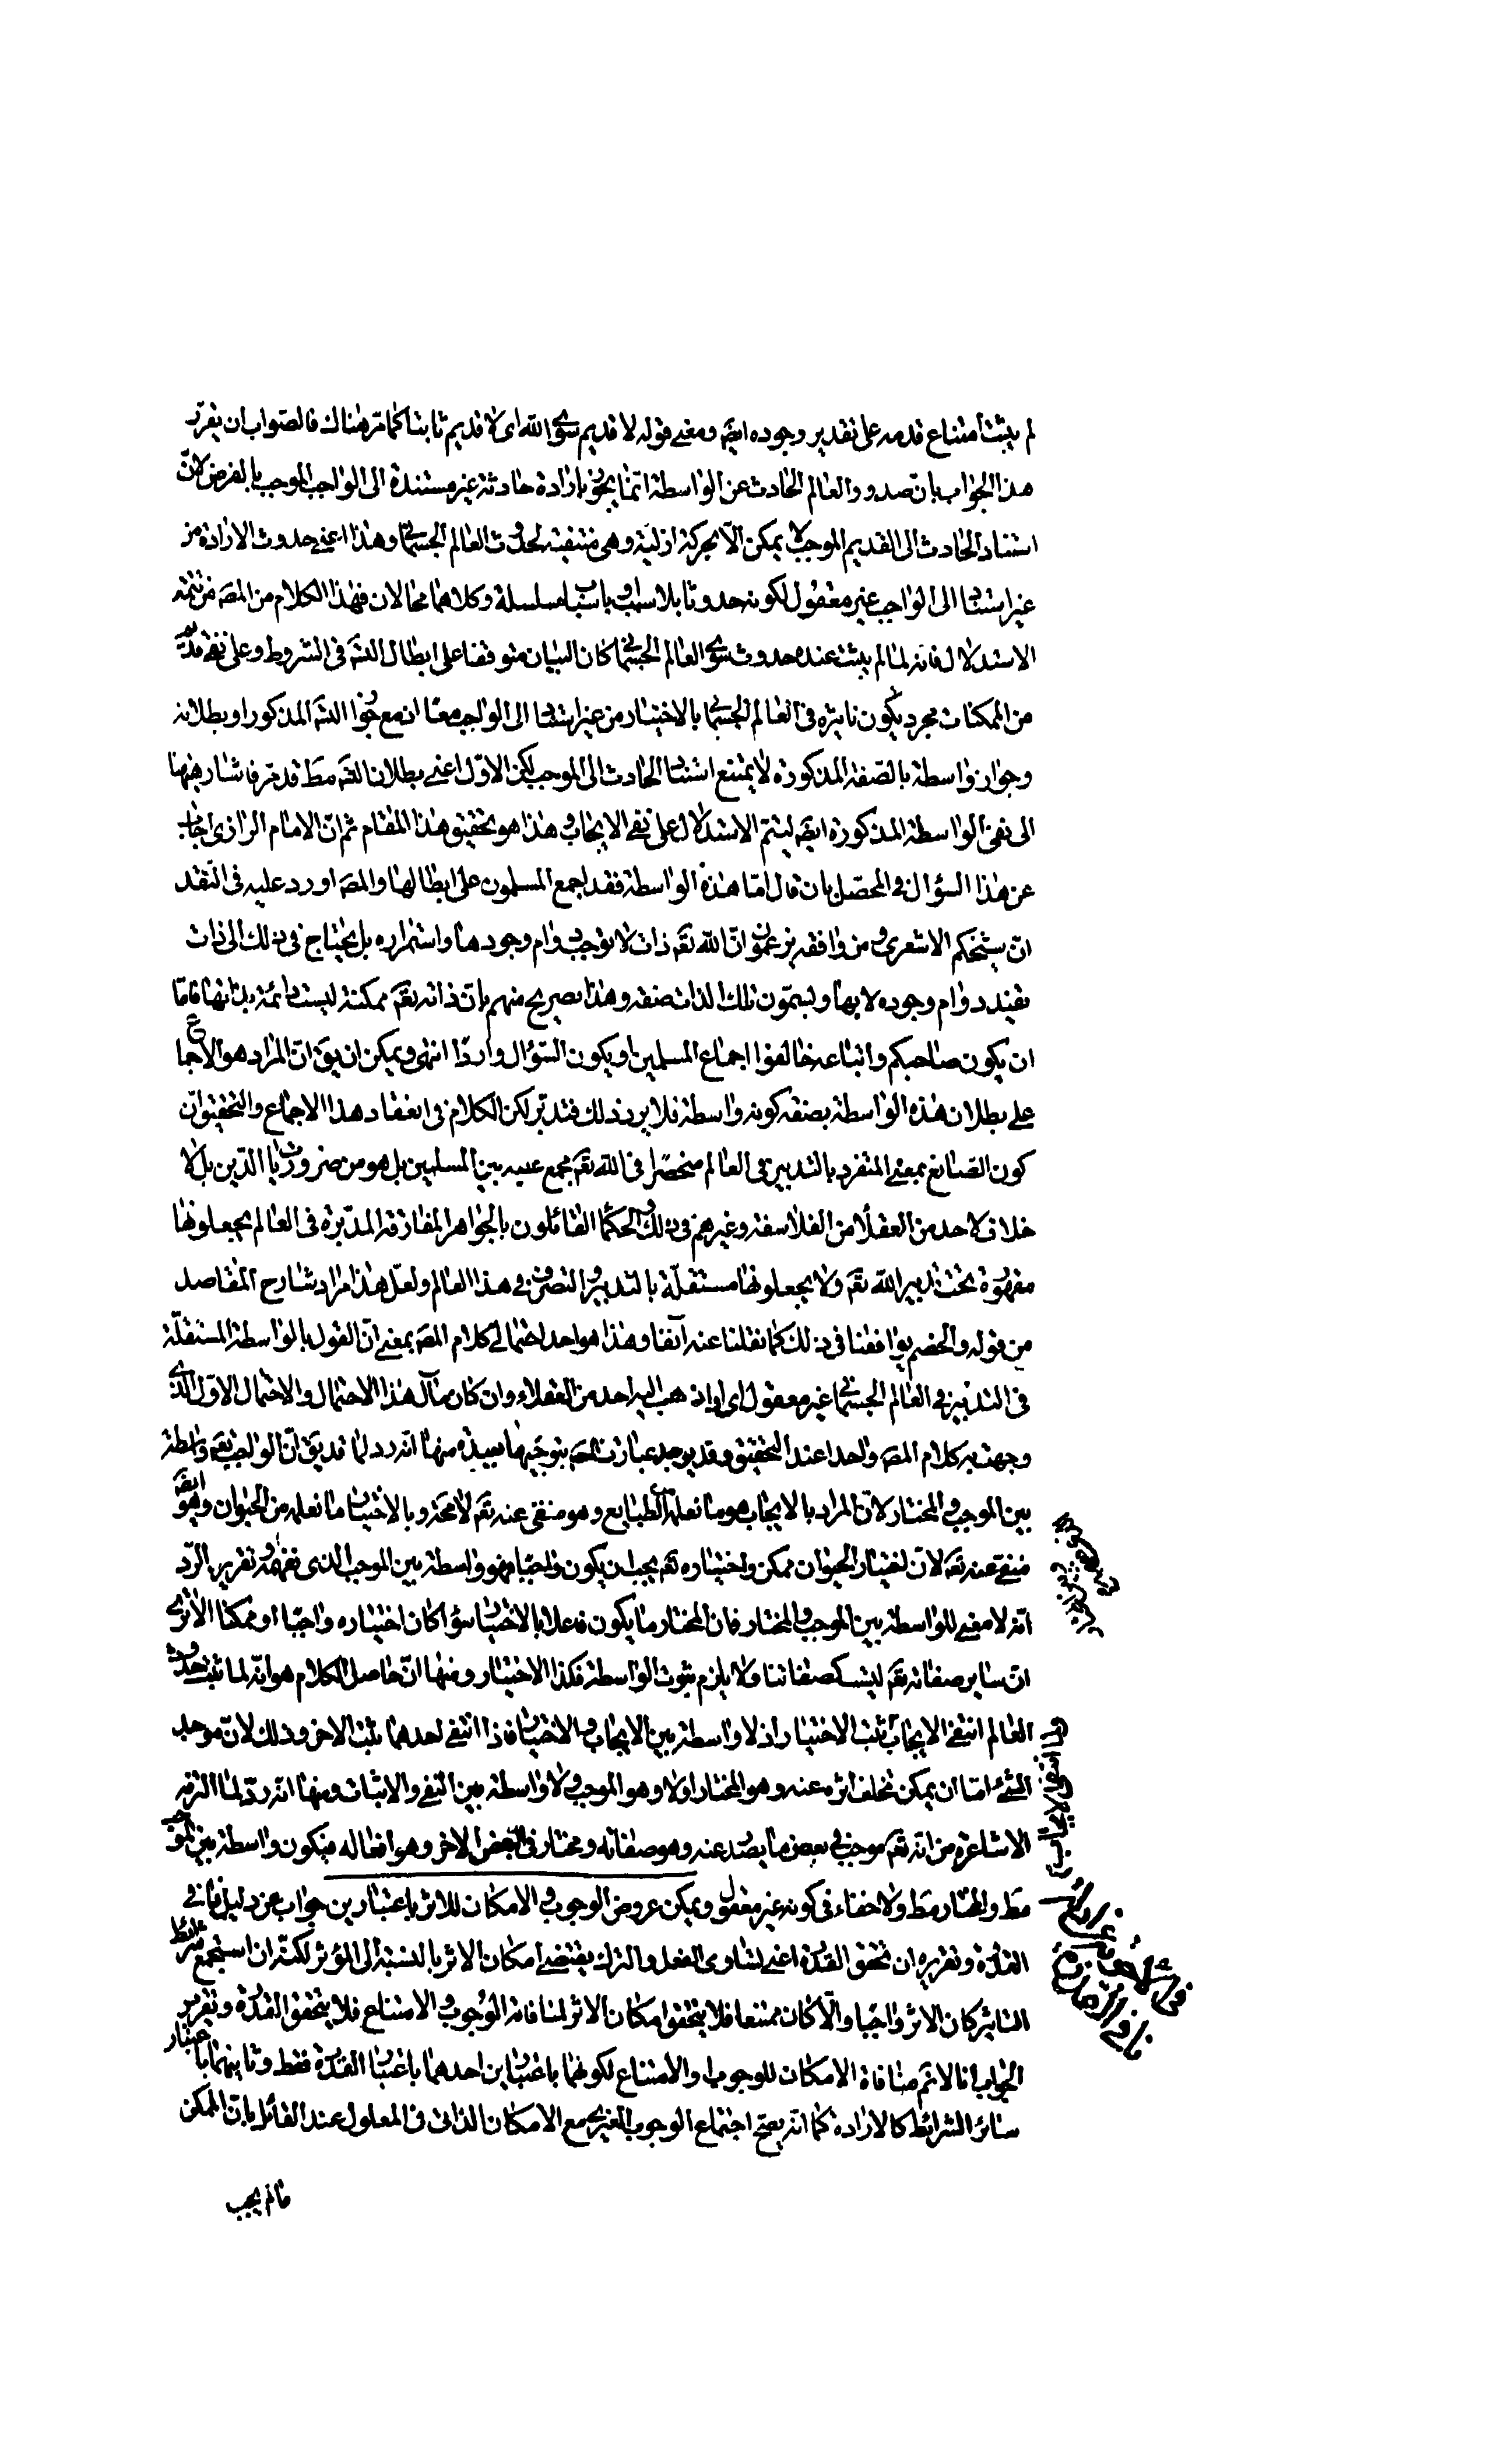 لم يثبت امتناع قدمه على تقدير وجوده ايضَ ومعنى قوله لا قديم سوى الله اى لا قديم ثابتا كما مرّ هناك فالصّواب ان يقرّر
هذا الجواب بان صدور العالم الحادث عن الواسطة انما يجوز بارادة حادثة غير مستندة الى الواجب الموجب بالفرض لانّ
استناد الحادث الى القديم الموجب لا يمكن الّا بحركة ازليّة وهى منتفية لحدوث العالم الجسمانى وهذا اعنى حدوث الارادة من
غير استناد الى الواجب غير معقول لكونه حدوثا بلا سبب او باسباب متسلسلة وكلاهما محالان فهذا الكلام من المصَ من تتمة
الاستدلال فانه لما لم يثبت عنده حدوث سوى العالم الجسمانى كان البيان متوقفا على ابطال التسَ فى الشروط وعلى نفى قديم
من الممكنات مجرد يكون تاثيره فى العالم الجسمانى بالاختيار من غير استناد الى الواجب معا ان مع جواز التسَ المذكور او بطلانه
وجواز واسطة بالصّفة المذكورة لا يمتنع استناد الحادث الى الموجب لكن الاوّل اعنى بطلان التسَ مطَ قد مرّ فاشار ههنا
الى نفى الواسطة المذكورة ايضَ ليتمّ الاستدلال على نفى الايجاب هذا هو تحقيق هذا المقام ثم انّ الامام الرازى اجاب
عن هذا السؤال فى المحصّل بان قال امّا هذه الواسطة فقد اجمع المسلمون على ابطالها والمصَ اورد عليه فى النّقد
انّ شيخكم الاشعرى ومن وافقه يزعمون انّ الله تعَ ذات لا توجب دوام وجودها واستمراره بل يحتاج فى ذلك الى ذات
تفيد دوام وجوده لا بها ويسمّون تلك الذات صفة وهذا تصريح منهم بانّ ذاته تعَ ممكنة ليست دائمة بذاتها فامّا
ان يكون صاحبكم واتباعه خالفوا اجماع المسلمين او يكون السّؤال واردّا انتهى ويمكن ان يقَ انّ المراد هو الاجماع
على بطلان هذه الواسطة بصفة كونه واسطة فلا يرد ذلك فتدبّر لكن الكلام فى انعقاد هذا الاجماع والتحقيق انّ
كون الصّانع بمعنى المتفرد بالتدبير فى العالم منحصرا فى الله تعَ مجمع عليه بين المسلمين بل هو من ضروريات الدّين بل لا
خلاف لاحد من العقلاء من الفلاسفة وغيرهم فى ذلك والحكماء القائلون بالجواهر المفارقة المدبّرة فى العالم يجعلونها
مقهورة تحت تدبير الله تعَ ولا يجعلونها مستقلّة بالتدبير والتصرف فى هذا العالم ولعلّ هذا مراد شارح المقاصد
من قوله والخصم يوافقنا فى ذلك كما نقلنا عنه آنفا وهذا هو احد احتمالى كلام المصَ بمعنى انّ القول بالواسطة المستقلّة
فى التدبير فى العالم الجسمانى غير معقول اى لم يذهب اليه احد من العقلاء وان كان مآل هذا الاحتمال والاحتمال الاوّل الذى
وجهت به كلام المصَ واحدا عند التحقيق وقد يوجه عبارة المصَ بتوجيهات بعيدة منها انّه رد لما قد يقَ انّ الواجب تعَ واسطة
بين الموجب والمختار لانّ المراد بالايجاب هو ما نعلم من الطبايع وهو منتفى عنه تعَ لا محَة وبالاختيار ما نعلمه من الحيوان وهو ايضَ
منفى عنه تعَ لانّ اختيار الحيوان ممكن واختياره تعَ يجب ان يكون واجبا فهو واسطة بين الموجب الذى نفهمه وتقرير الرّد
انّه لا معنى للواسطة بين الموجب والمختار فان المختار ما يكون فاعلا بالاختيار سواء كان اختياره واجبا او ممكنا الا ترى
انّ ساير صفاته تعَ ليست كصفاتنا ولا يلزم ثبوت الواسطة فكذا الاختيار ومنها انّ حاصل الكلام هو انّه لما ثبت حدوث
العالم انتفى الايجاب ثبت الاختيار اذ لا واسطة بين الايجاب والاختيار فاذا انتفى احدهما يثبت الاخر وذلك لانّ موجد
الشّئ امّا ان يمكن تخلف اثره عنه وهو المختار اولا وهو الموجب ولا واسطة بين النّفى والاثبات ومنها انّه ردّ لما التزمه
الاشاعرة من انّه تعَ موجب فى بعض ما يصدر عنه وهو صفاته ومختار فى البعض الاخر وهو افعاله فيكون واسطة بين الموجب
مطَ والمختار مطَ ولا خفاء فى كونه غير معقول ويمكن عروض الوجوب والامكان للاثر باعتبارين جواب عن دليل نافى
القدرة وتقريره ان تحقق القدرة اعنى تساوى الفعل والترك يقتضى امكان الاثر بالنسبة الى المؤثر لكنّه ان استجمع شرائط
التاثير كان الاثر واجبا والّا كان ممتنعا فلا يتحقق امكان الاثر لمنافاته الوجوب والامتناع فلا يتحقق القدرة وتقرير
الجواب انا لا نم منافاة الامكان للوجوب والامتناع لكونهما باعتبارين احدهما باعتبار القدرة فقط وثانيهما باعتبار
سائر الشرائط كالارادة كما انّه يصحّ اجتماع الوجوب الغيرى مع الامكان الذاتى فى المعلول عند القائل بانّ الممكن
مالم يجب